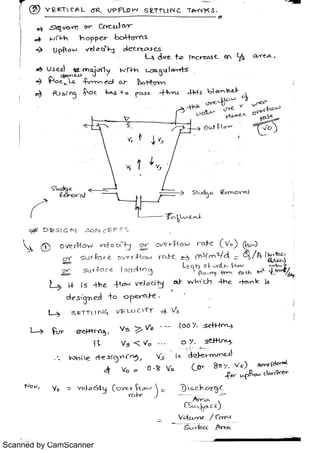 ④ VERTICAL OR UPFLOW SETTLING TANKS.
⇒ Square or Circular
⇒ With hopper bottoms
⇒ Upflow velocity decreases
↳ due to increase in c/s area.
⇒ used majorly with coagulants
⇒ Floc is formed at bottom
⇒ Rising floc has to pass thru this blanket
Outflow
V₀
V₀ ↑ ↓ Vs
V₀ ↑ ↓ Vs
Sludge Removal
Sludge Removal
Influent
DESIGN CONCEPTS
① Overflow velocity or overflow rate (V₀)
or surface overflow rate ⇒ m³/m²/d = Q/A
or surface loading
↳ it is the flow velocity at which the tank is
designed to operate.
↳ SETTLING VELOCITY ⇒ Vs
↳ For settling, Vs ≥ V₀ --- 100% settling
if Vs < V₀ ... 0% settling
∴ while designing, Vs is determined
& V₀ = 0.8 Vs (or 80% Vs)
for upflow clarifier
Now, V₀ = velocity (overflow rate) = Discharge
Area (Surface)
= Volume / time
Surface Area
Scanned by CamScanner